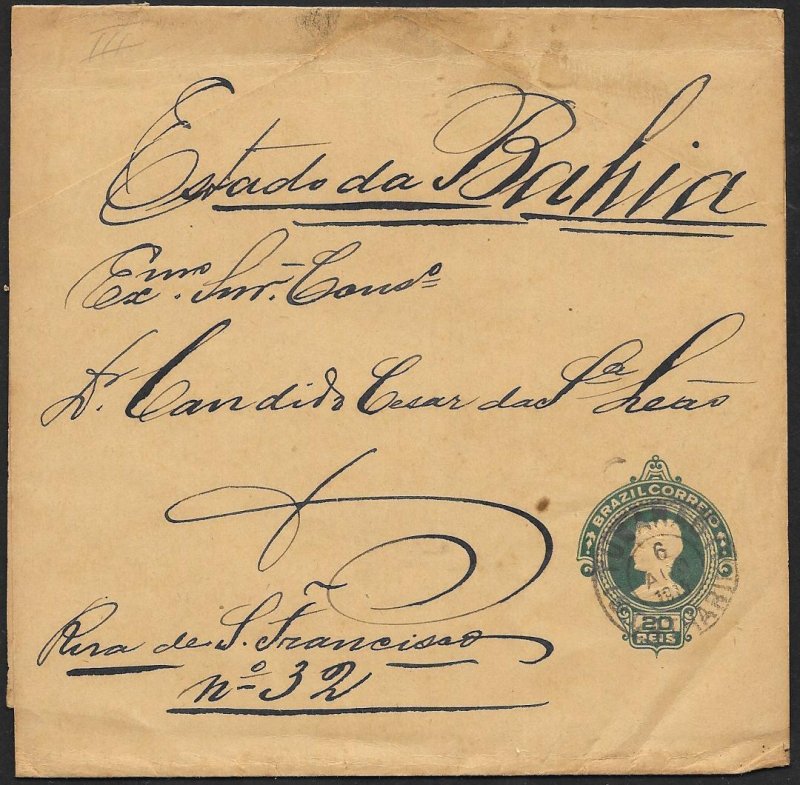 III
Estado da Bahia
Exmo. Snr. Conso
Dr. Candido Cesar da Sa Leão
Rua de S. Francisco
no 32
BRAZIL CORREIO
6
20
REIS